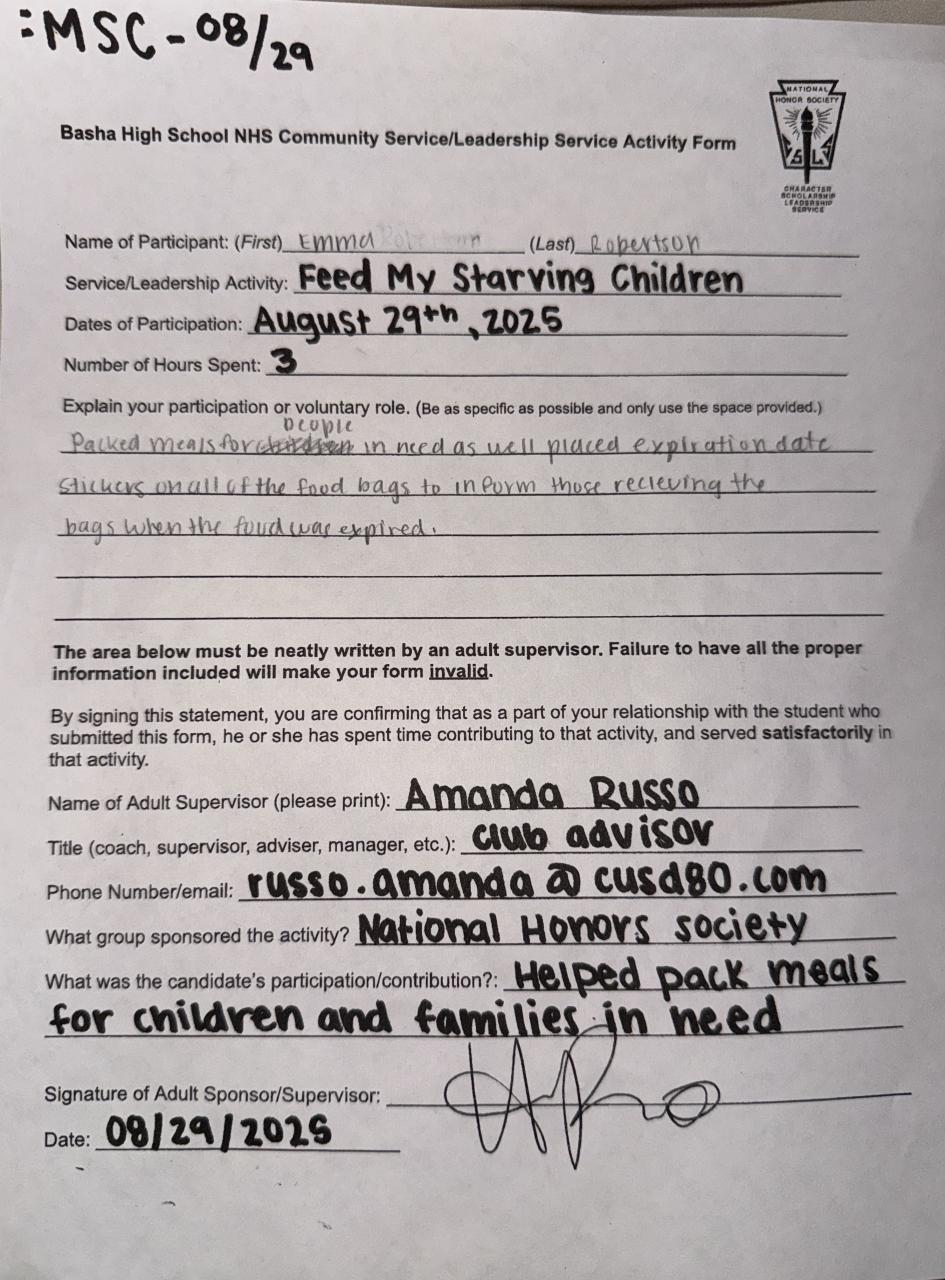 :MSC - 08/29
NATIONAL
HONOR SOCIETY
CHARACTER
SCHOLARSHIP
LEADERSHIP
SERVICE
Basha High School NHS Community Service/Leadership Service Activity Form
Name of Participant: (First) Emma (Last) Robertson
Service/Leadership Activity: Feed My Starving Children
Dates of Participation: August 29th, 2025
Number of Hours Spent: 3
Explain your participation or voluntary role. (Be as specific as possible and only use the space provided.)
people
Packed meals for children in need as well placed expiration date
stickers on all of the food bags to inform those recieving the
bags when the food was expired.
The area below must be neatly written by an adult supervisor. Failure to have all the proper
information included will make your form invalid.
By signing this statement, you are confirming that as a part of your relationship with the student who
submitted this form, he or she has spent time contributing to that activity, and served satisfactorily in
that activity.
Name of Adult Supervisor (please print): Amanda Russo
Title (coach, supervisor, adviser, manager, etc.): club advisor
Phone Number/email: russo.amanda@cusd80.com
What group sponsored the activity? National Honors society
What was the candidate's participation/contribution?: Helped pack meals
for children and families in need
Signature of Adult Sponsor/Supervisor:
Date: 08/29/2025